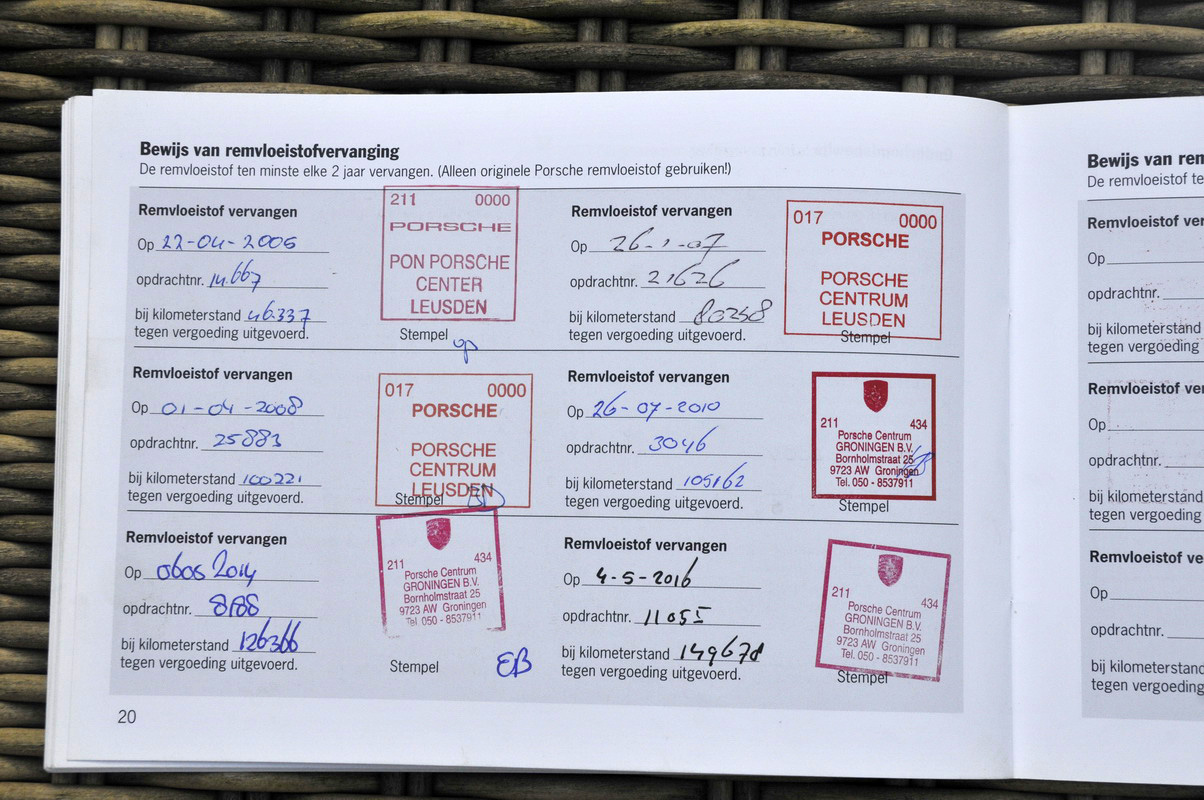 Bewijs van remvloeistofvervanging
De remvloeistof ten minste elke 2 jaar vervangen. (Alleen originele Porsche remvloeistof gebruiken!)
Remvloeistof vervangen
Op 22-04-2005
opdrachtnr. 14.667
bij kilometerstand 46.337
tegen vergoeding uitgevoerd.
211 0000
PORSCHE
PON PORSCHE
CENTER
LEUSDEN
Stempel
Remvloeistof vervangen
Op 26-1-07
opdrachtnr. 21626
bij kilometerstand 80258
tegen vergoeding uitgevoerd.
017 0000
PORSCHE
PORSCHE
CENTRUM
LEUSDEN
Stempel
Remvloeistof vervangen
Op 01-04-2008
opdrachtnr. 25883
bij kilometerstand 100221
tegen vergoeding uitgevoerd.
017 0000
PORSCHE
PORSCHE
CENTRUM
LEUSDEN
Stempel
Remvloeistof vervangen
Op 26-07-2010
opdrachtnr. 3046
bij kilometerstand 105162
tegen vergoeding uitgevoerd.
211 434
Porsche Centrum
GRONINGEN B.V.
Bornholmstraat 25
9723 AW Groningen
Tel. 050 - 8537911
Stempel
Remvloeistof vervangen
Op 0605 2014
opdrachtnr. 8188
bij kilometerstand 126366
tegen vergoeding uitgevoerd.
211 434
Porsche Centrum
GRONINGEN B.V.
Bornholmstraat 25
9723 AW Groningen
Tel 050 - 8537911
Stempel EB
Remvloeistof vervangen
Op 4-5-2016
opdrachtnr. 11055
bij kilometerstand 149678
tegen vergoeding uitgevoerd.
211 434
Porsche Centrum
GRONINGEN B.V.
Bornholmstraat 25
9723 AW Groningen
Tel. 050 - 8537911
Stempel
20
Bewijs van
De remvloeistof
Remvloeistof
Op
opdrachtnr.
bij kilometerstand
tegen vergoeding
Remvloeistof
Op
opdrachtnr.
bij kilometerstand
tegen vergoeding
Remvloeistof
Op
opdrachtnr.
bij kilometerstand
tegen vergoeding